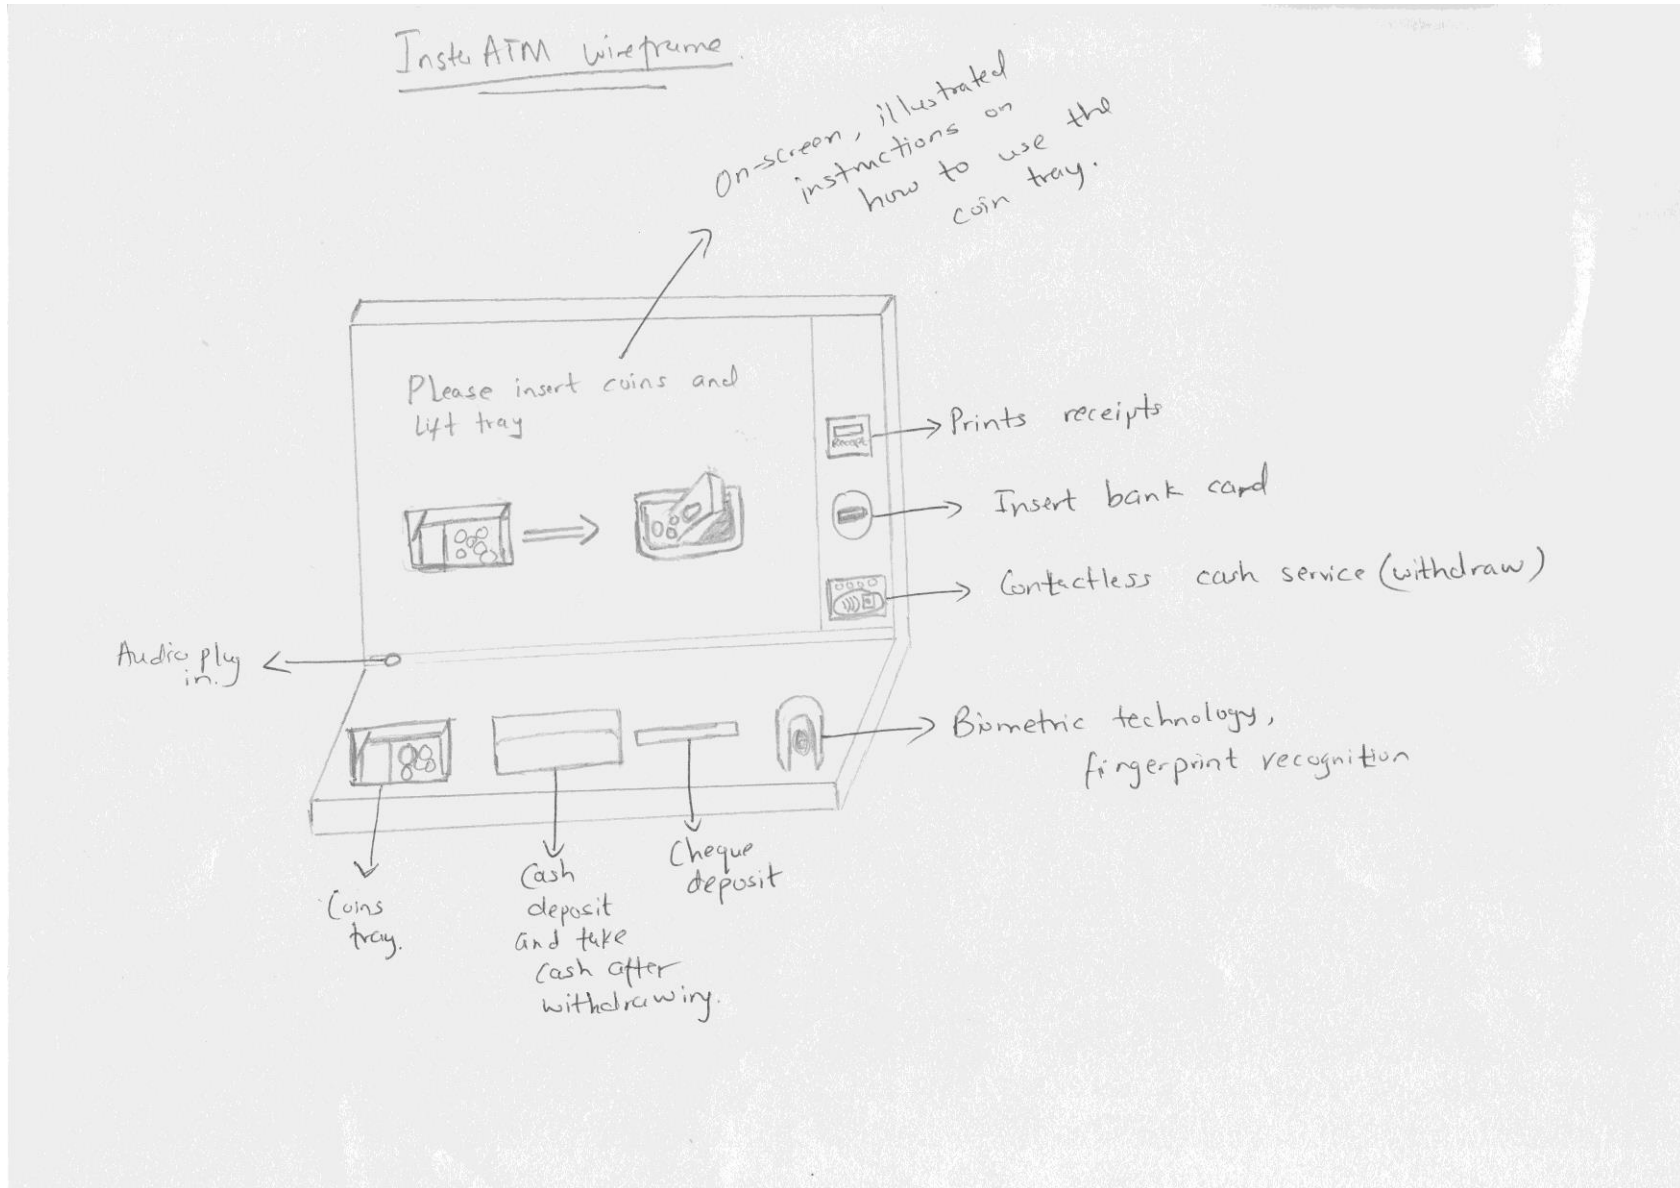 Insta ATM wireframe.
On-screen, illustrated
instructions on
how to use the
coin tray.
Please insert coins and
Lift tray
Receipt
Prints receipts
Insert bank card
Contactless cash service (withdraw)
Audio plug
in.
Biometric technology,
fingerprint recognition
Coins
tray.
Cash
deposit
and take
cash after
withdrawing.
Cheque
deposit